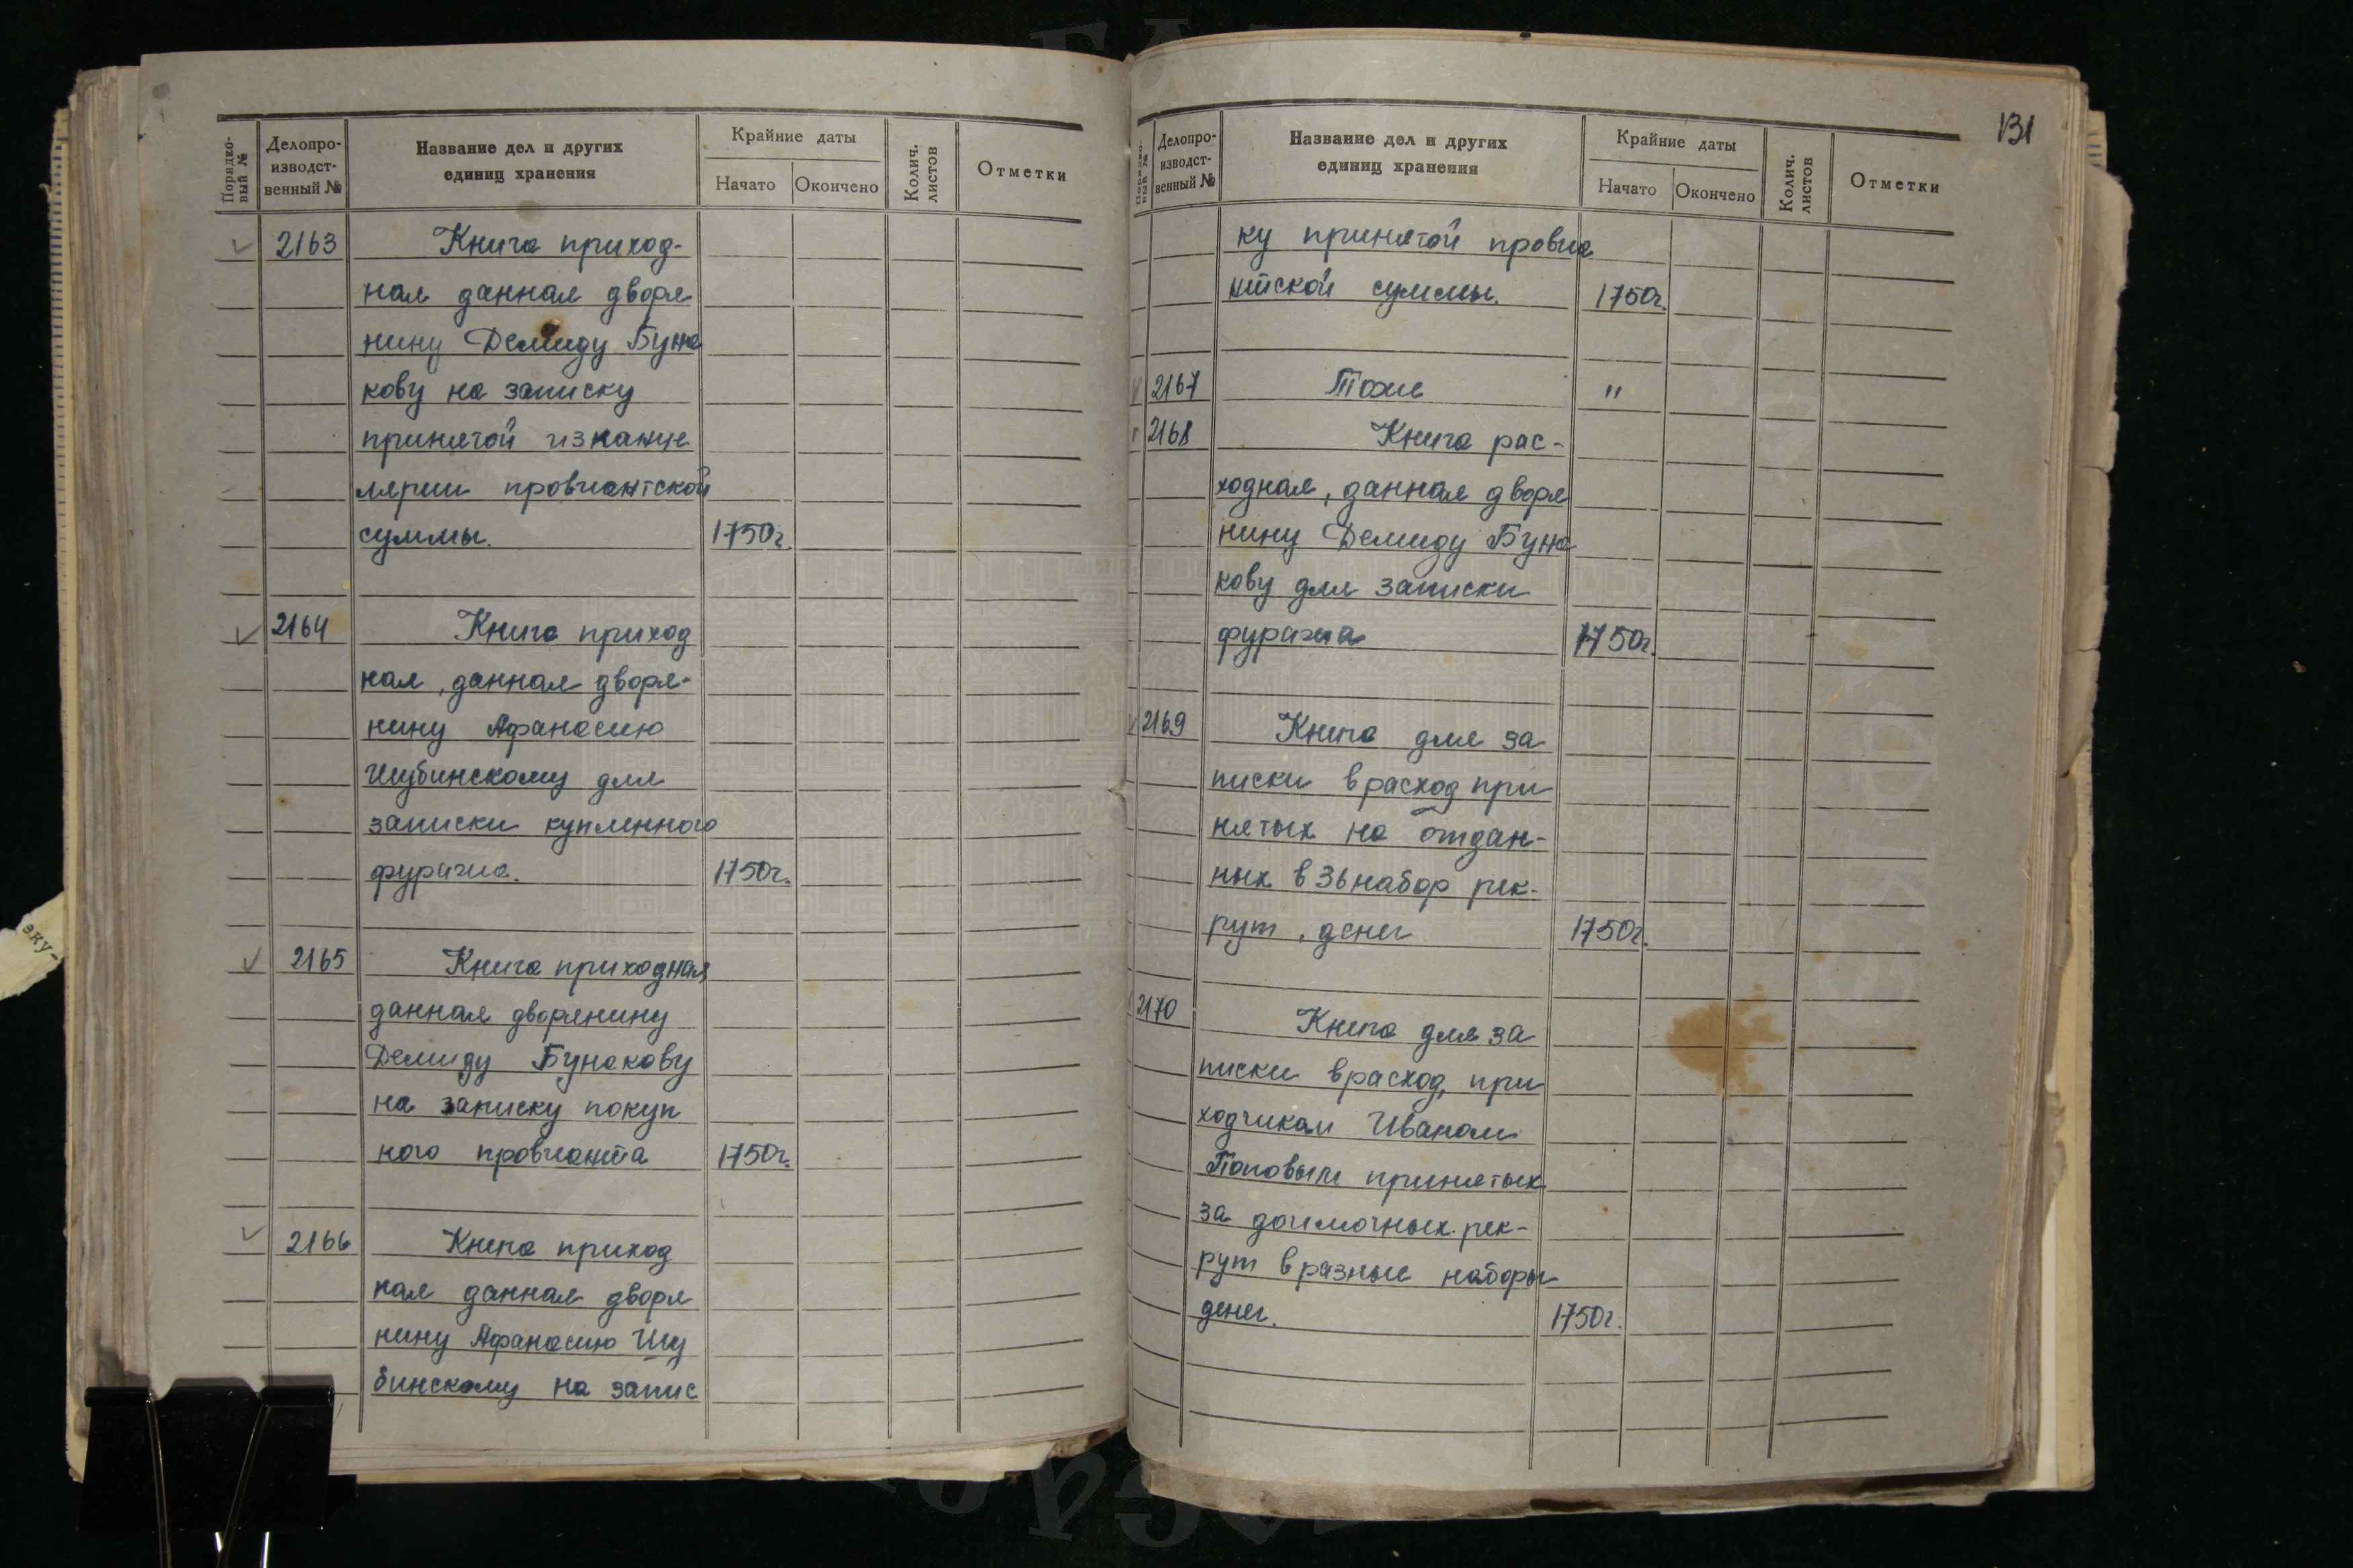 Порядко-
вый №
Делопро-
изводст-
венный №
Название дел и других
единиц хранения
Крайние даты
Начато
Окончено
Колич.
листов
Отметки
2163 Книга приход-
ная данная дворя
нину Демиду Буна
кову на записку
принятой из канце
лярии провиантской
суммы. 1750г.
2164 Книга приход
ная, данная дворя-
нину Афанасию
Шубинскому для
записки купленного
фуража. 1750г.
2165 Книга приходная,
данная дворянину
Демиду Бунакову
на записку покуп
ного провианта 1750г.
2166 Книга приход
ная данная дворя
нину Афанасию Шу
бинскому на запис
131
Порядко-
вый №
Делопро-
изводст-
венный №
Название дел и других
единиц хранения
Крайние даты
Начато
Окончено
Колич.
листов
Отметки
ку принятой провиа
нтской суммы. 1750г.
2167 Тоже "
2168 Книга рас-
ходная, данная дворя
нину Демиду Буна
кову для записки
фуража 1750г.
2169 Книга для за
писки в расход при
нятых на отдан-
ных в 36 набор рек-
рут, денег 1750г.
2170 Книга для за
писки в расход, при
ходчиком Иваном
Поповым принятых
за доимочных рек-
рут в разные наборы
денег. 1750г.
эку-